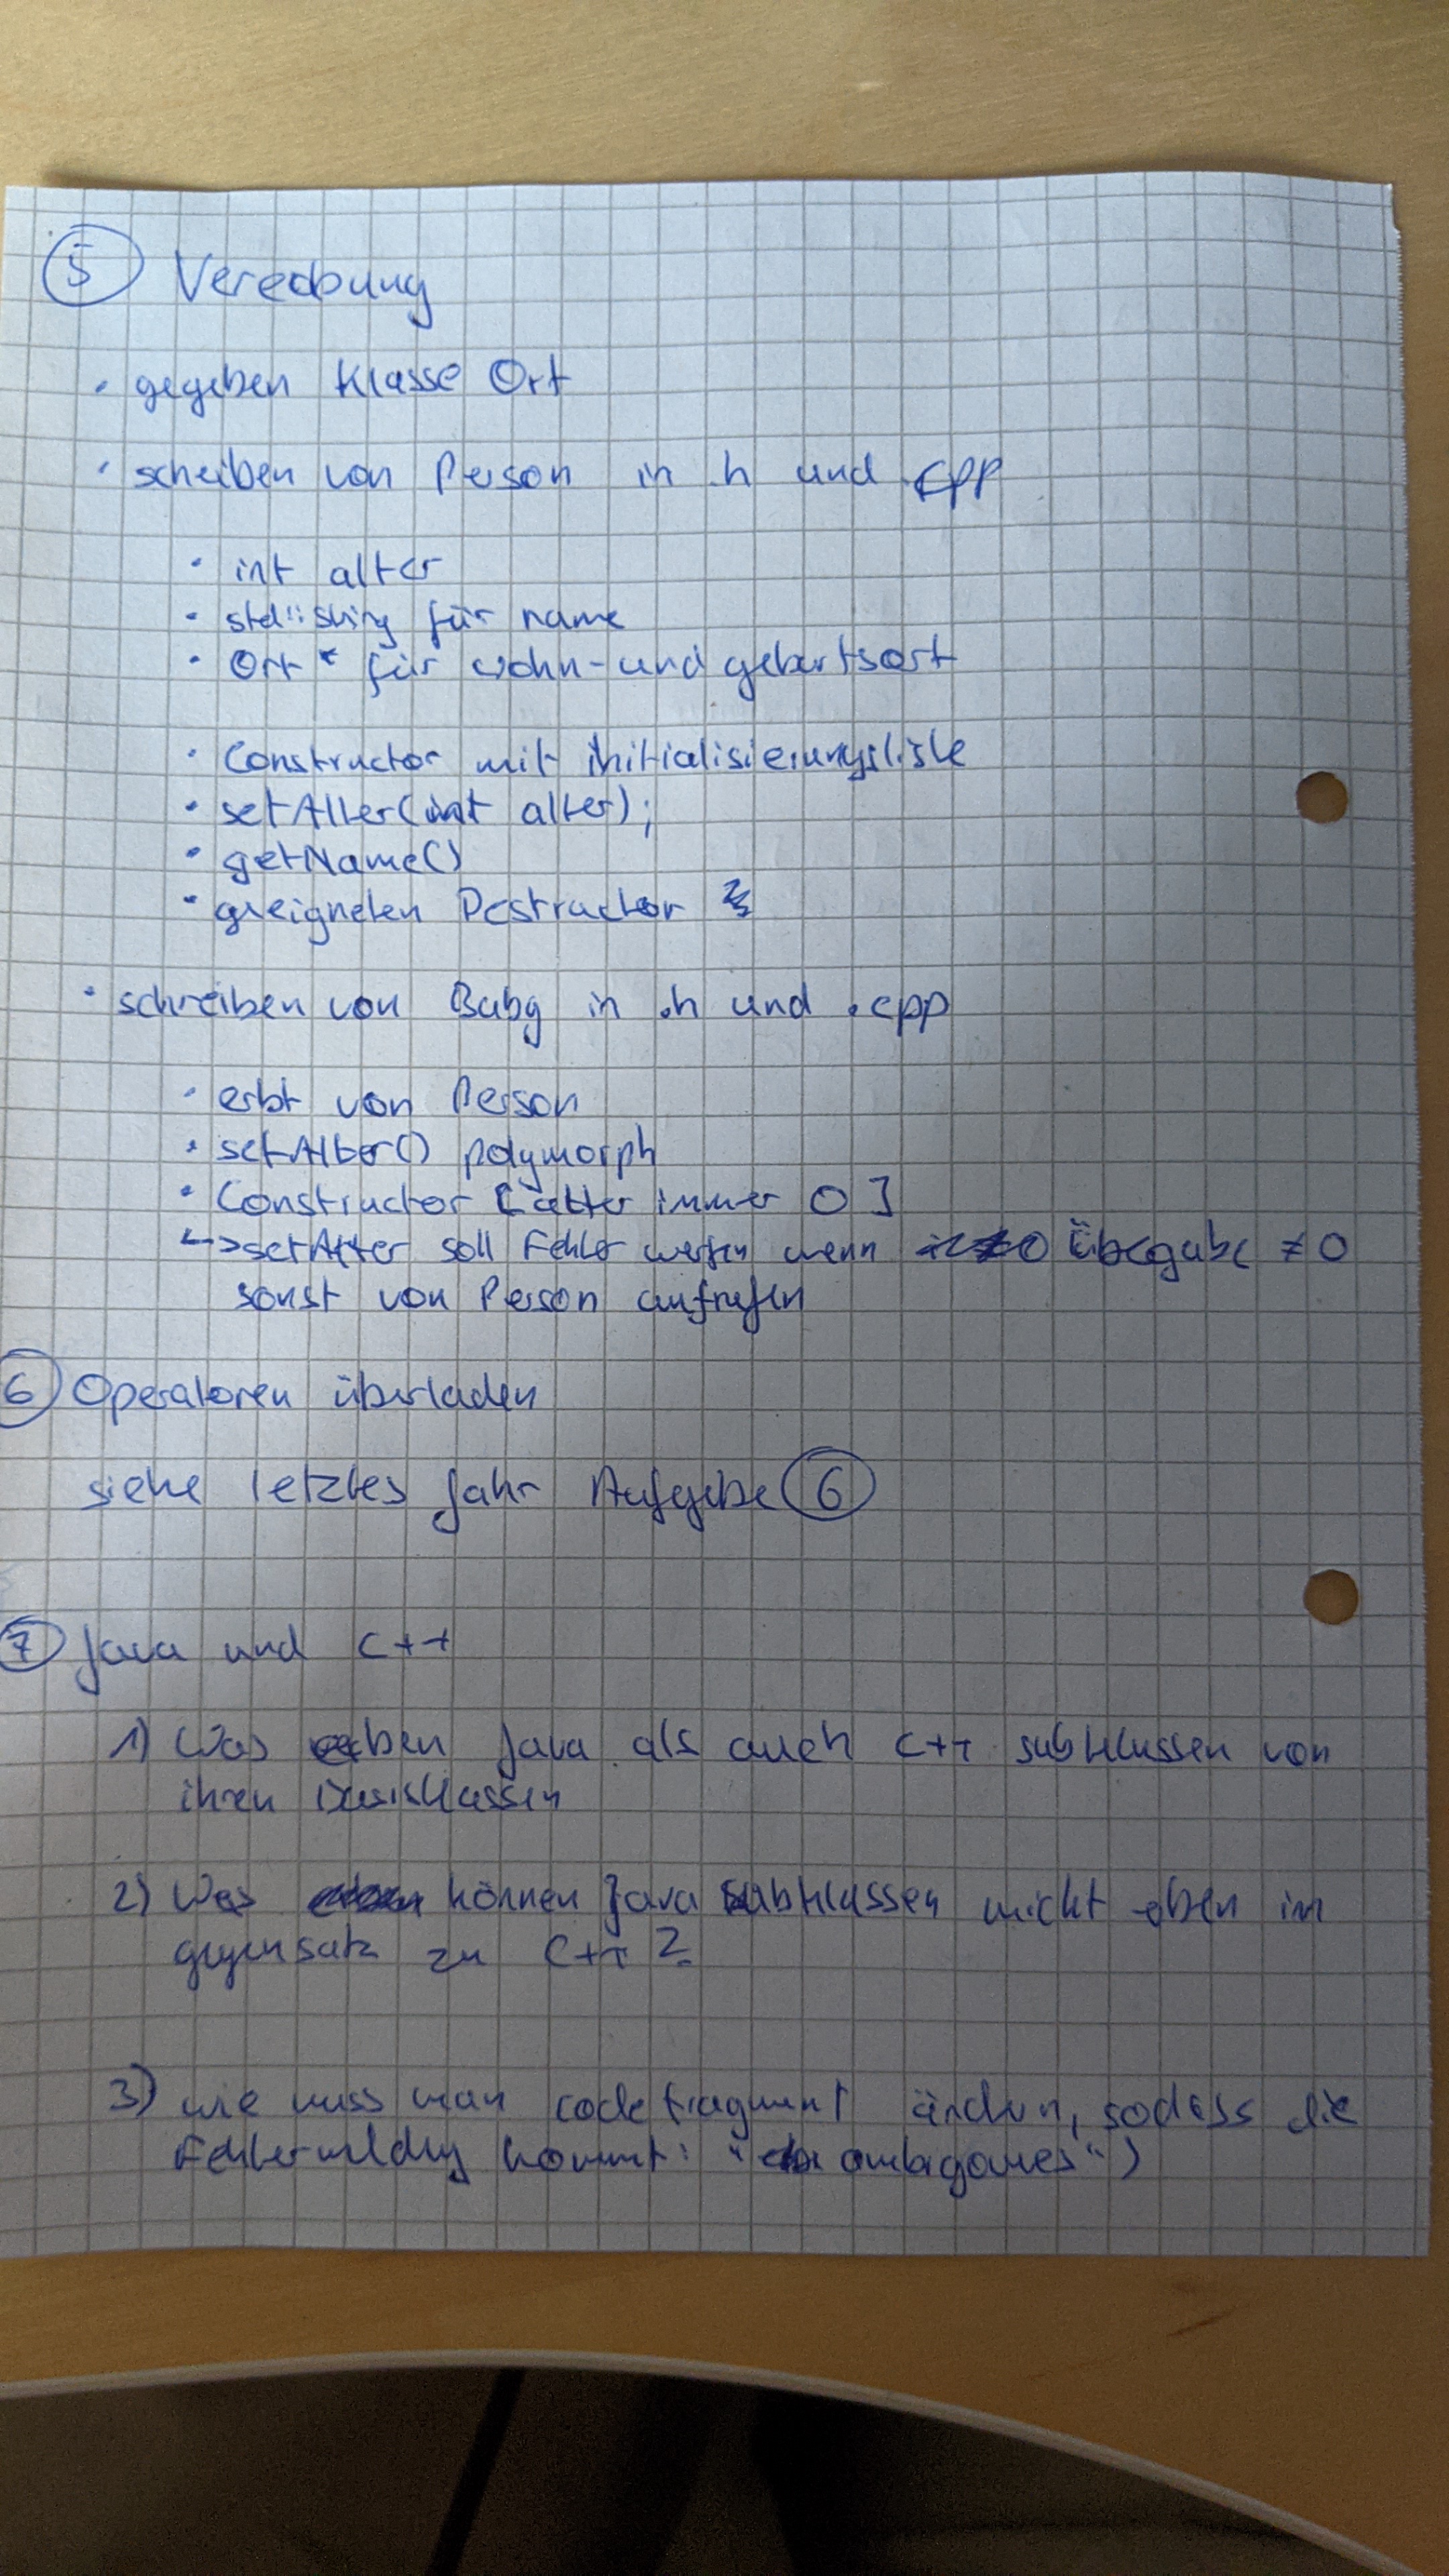 5 Veredbung
· gegeben Klasse Ort
· scheiben von Person in .h und .cpp
· int alter
· std::string für name
· Ort * für wohn- und geburtsort
· Constructor mit initialisierungsliste
· setAlter(int alter);
· getName()
· geeigneten Destructor
· schreiben von Baby in .h und .cpp
· erbt von Person
· setAlter() polymorph
· Constructor [alter immer 0]
↳ setAlter soll Fehler werfen wenn Übergabe ≠ 0
sonst von Person aufrufen
6 Operatoren überladen
siehe letztes Jahr Aufgabe 6
7 Java und C++
1) Was erben Java als auch C++ subklassen von
ihren Basisklassen
2) Was können Java Subklassen nicht erben im
gegensatz zu C++ ?
3) wie muss man codefragment ändern, sodass die
Fehlermeldung kommt: " ")